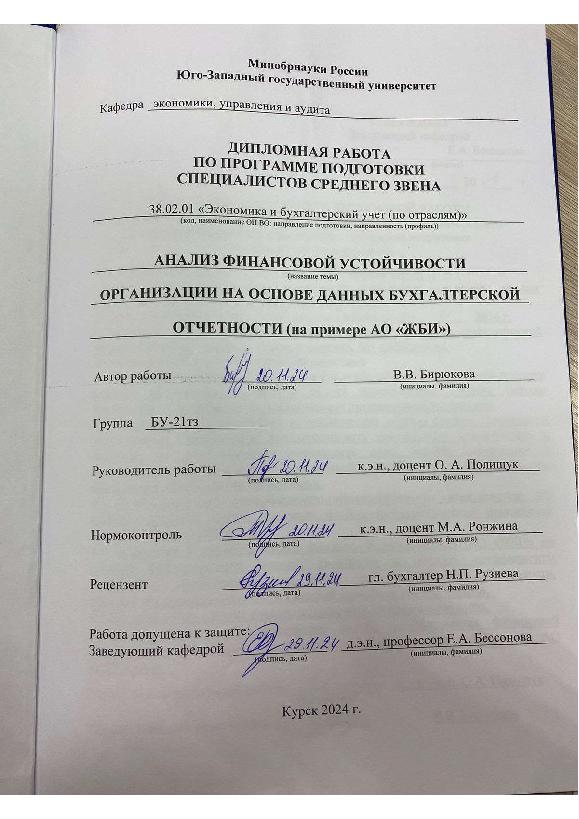 Минобрнауки России
Юго-Западный государственный университет
Кафедра экономики, управления и аудита
ДИПЛОМНАЯ РАБОТА
ПО ПРОГРАММЕ ПОДГОТОВКИ
СПЕЦИАЛИСТОВ СРЕДНЕГО ЗВЕНА
38.02.01 «Экономика и бухгалтерский учет (по отраслям)»
(код, наименование ОП ВО: направление подготовки, направленность (профиль))
АНАЛИЗ ФИНАНСОВОЙ УСТОЙЧИВОСТИ
(название темы)
ОРГАНИЗАЦИИ НА ОСНОВЕ ДАННЫХ БУХГАЛТЕРСКОЙ
ОТЧЕТНОСТИ (на примере АО «ЖБИ»)
Автор работы 20.11.24 В.В. Бирюкова
(подпись, дата) (инициалы, фамилия)
Группа БУ-21тз
Руководитель работы 20.11.24 к.э.н., доцент О. А. Полищук
(подпись, дата) (инициалы, фамилия)
Нормоконтроль 20.11.24 к.э.н., доцент М.А. Ронжина
(подпись, дата) (инициалы, фамилия)
Рецензент 29.11.24 гл. бухгалтер Н.П. Рузиева
(подпись, дата) (инициалы, фамилия)
Работа допущена к защите:
Заведующий кафедрой 29.11.24 д.э.н., профессор Е.А. Бессонова
(подпись, дата) (инициалы, фамилия)
Курск 2024 г.